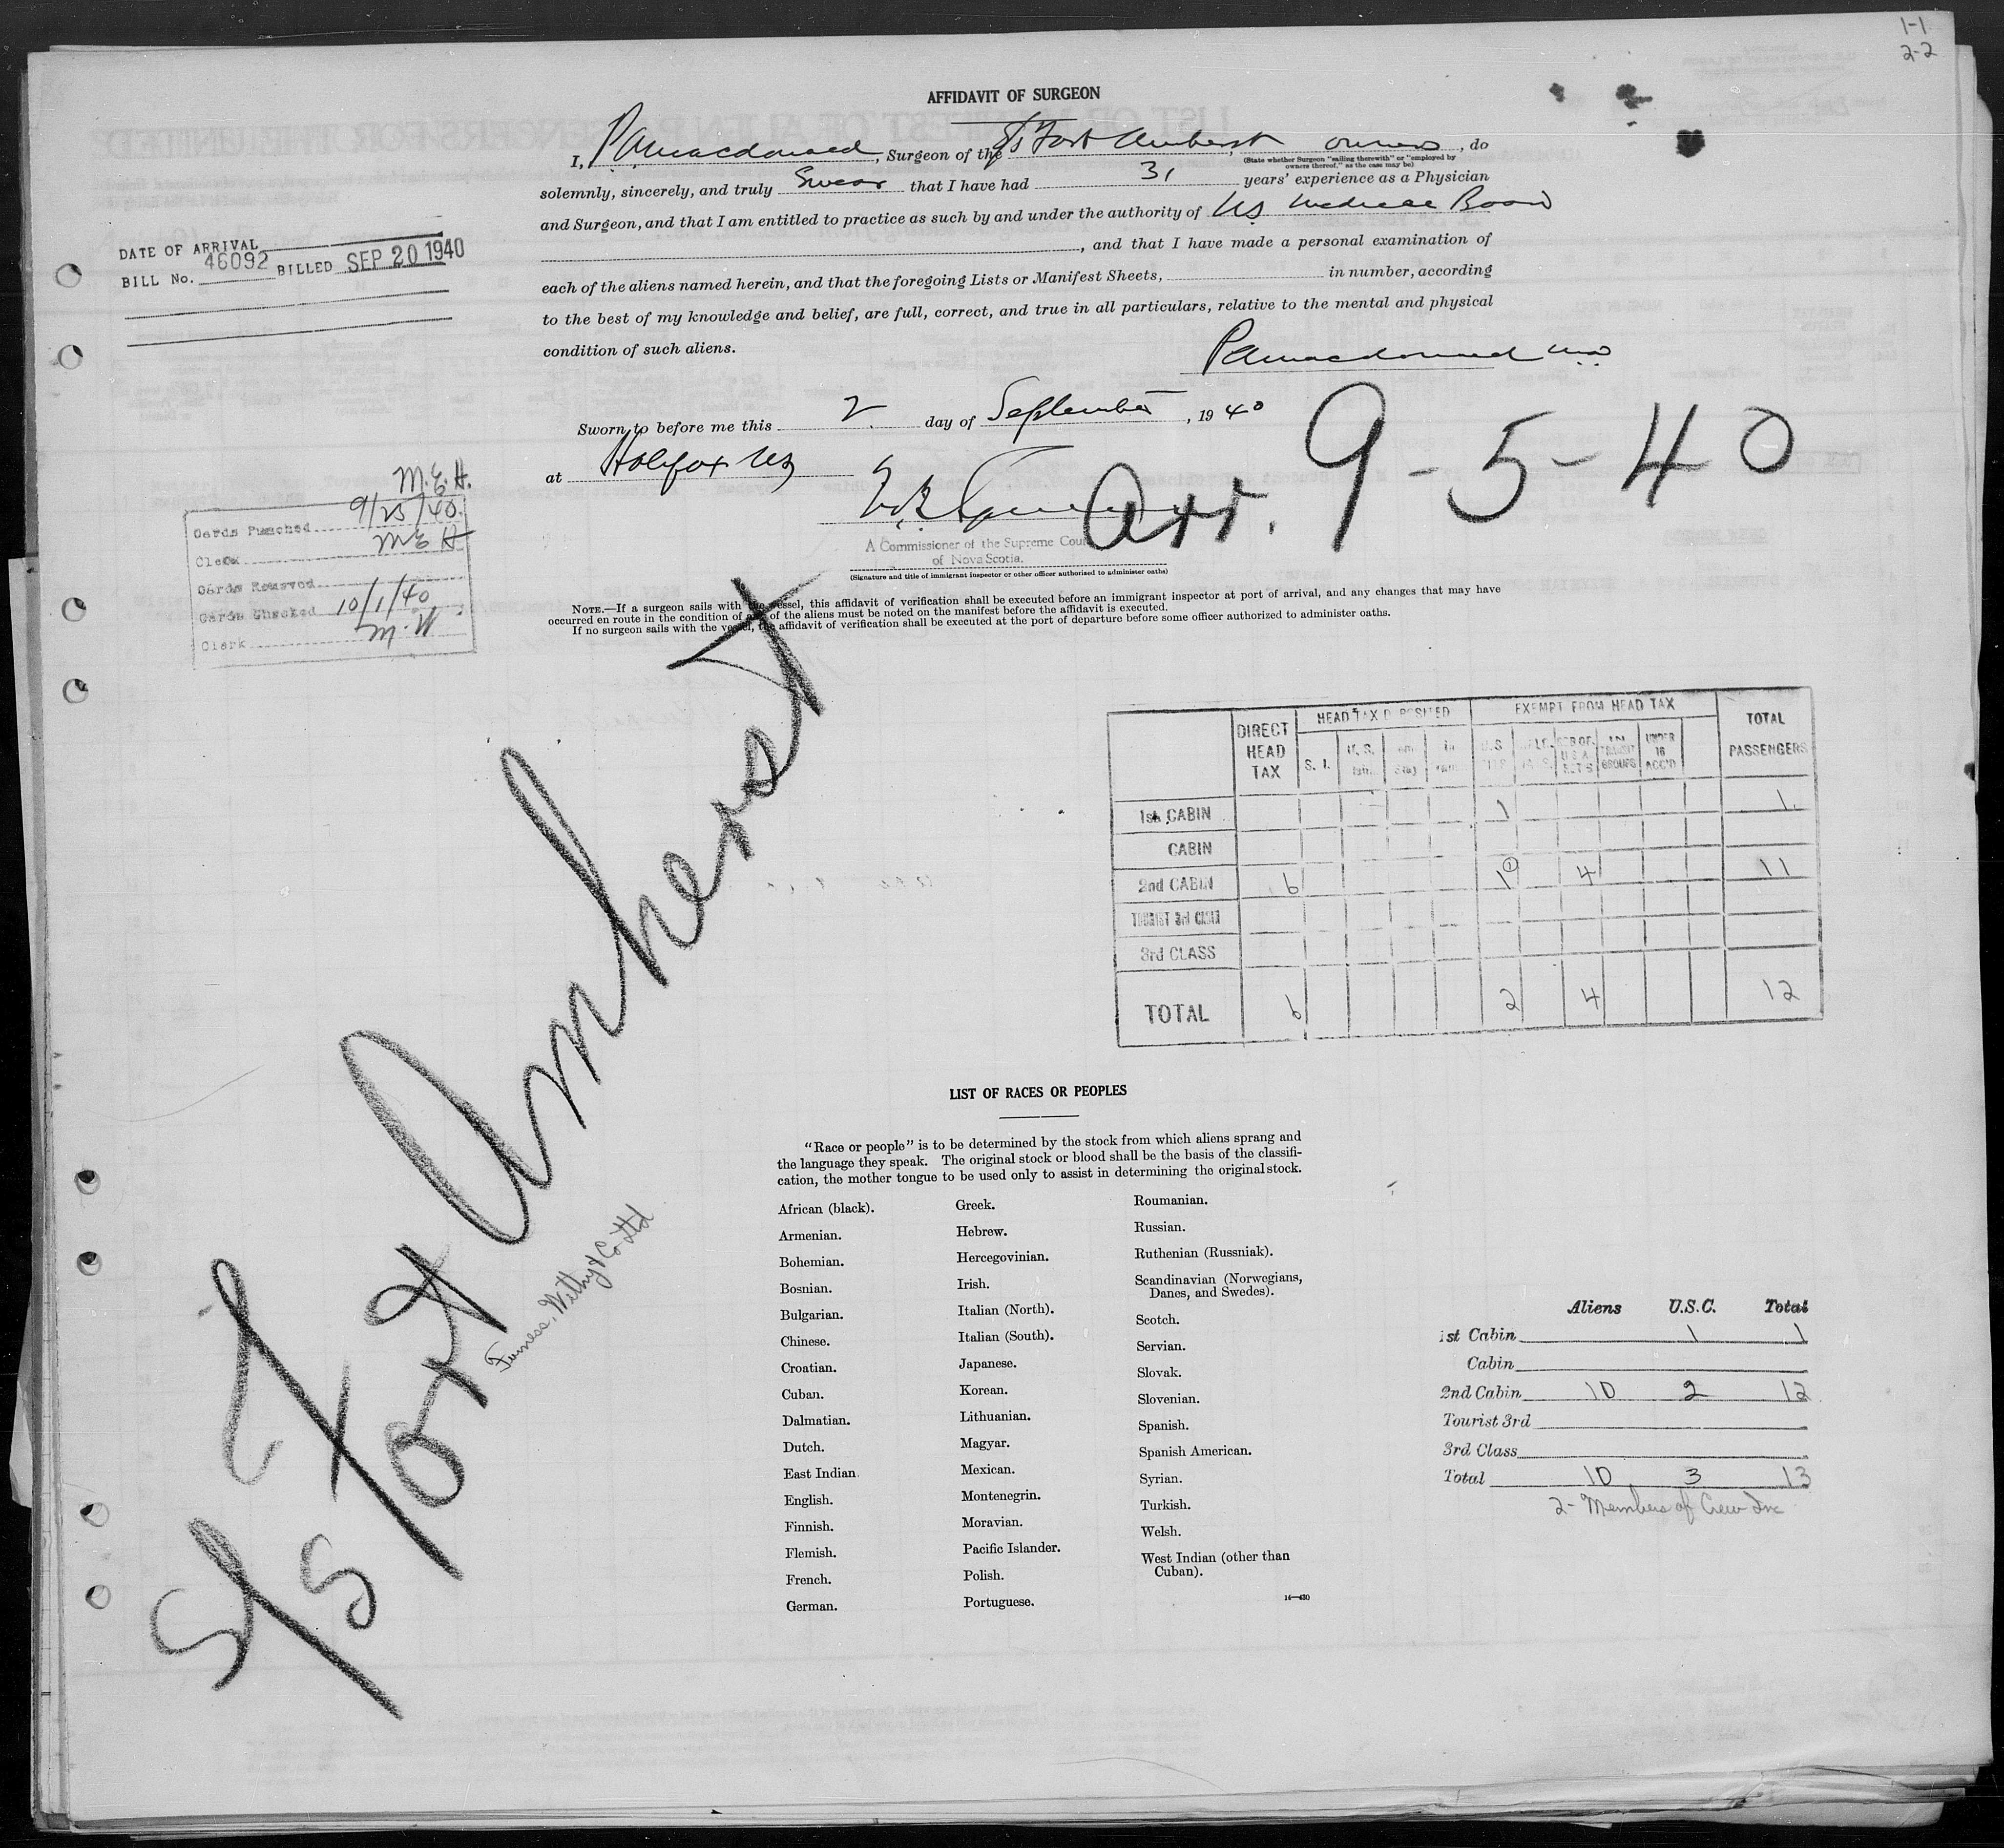 1-1
2-2
AFFIDAVIT OF SURGEON
I, P A Macdonald, Surgeon of the S/s Fort Amherst owners, do
(State whether Surgeon "sailing therewith" or "employed by
owners thereof," as the case may be)
solemnly, sincerely, and truly Swear that I have had 31 years' experience as a Physician
and Surgeon, and that I am entitled to practice as such by and under the authority of NS Medical Board
, and that I have made a personal examination of
each of the aliens named herein, and that the foregoing Lists or Manifest Sheets, in number, according
to the best of my knowledge and belief, are full, correct, and true in all particulars, relative to the mental and physical
condition of such aliens.
P A Macdonald MD
DATE OF ARRIVAL
BILL No. 46092 BILLED SEP 20 1940
Sworn to before me this 2 day of September, 1940
at Halifax NS
Arr. 9-5-40
A Commissioner of the Supreme Court
of Nova Scotia.
(Signature and title of immigrant inspector or other officer authorized to administer oaths)
M.E.H.
Cards Punched 9/25/40
Clerk MEH
Cards Removed
Cards Checked 10/1/40
Clerk M.H
NOTE.—If a surgeon sails with the vessel, this affidavit of verification shall be executed before an immigrant inspector at port of arrival, and any changes that may have
occurred en route in the condition of any of the aliens must be noted on the manifest before the affidavit is executed.
If no surgeon sails with the vessel, the affidavit of verification shall be executed at the port of departure before some officer authorized to administer oaths.
S/S Fort Amherst
Furness, Withy & Co Ltd
DIRECT HEAD TAX
HEAD TAX DEPOSITED
EXEMPT FROM HEAD TAX
TOTAL PASSENGERS
S. I.
TRANSIT GROUPS
UNDER 16 ACC'D
1st CABIN 1 1
CABIN
2nd CABIN 6 1 1 4 11
TOURIST 3rd CABIN
3rd CLASS
TOTAL 6 2 4 12
LIST OF RACES OR PEOPLES
"Race or people" is to be determined by the stock from which aliens sprang and
the language they speak. The original stock or blood shall be the basis of the classifi-
cation, the mother tongue to be used only to assist in determining the original stock.
African (black).
Armenian.
Bohemian.
Bosnian.
Bulgarian.
Chinese.
Croatian.
Cuban.
Dalmatian.
Dutch.
East Indian
English.
Finnish.
Flemish.
French.
German.
Greek.
Hebrew.
Hercegovinian.
Irish.
Italian (North).
Italian (South).
Japanese.
Korean.
Lithuanian.
Magyar.
Mexican.
Montenegrin.
Moravian.
Pacific Islander.
Polish.
Portuguese.
Roumanian.
Russian.
Ruthenian (Russniak).
Scandinavian (Norwegians,
Danes, and Swedes).
Scotch.
Servian.
Slovak.
Slovenian.
Spanish.
Spanish American.
Syrian.
Turkish.
Welsh.
West Indian (other than
Cuban).
14—430
Aliens U.S.C. Total
1st Cabin 1 1
Cabin
2nd Cabin 10 2 12
Tourist 3rd
3rd Class
Total 10 3 13
2- Members of Crew Inc